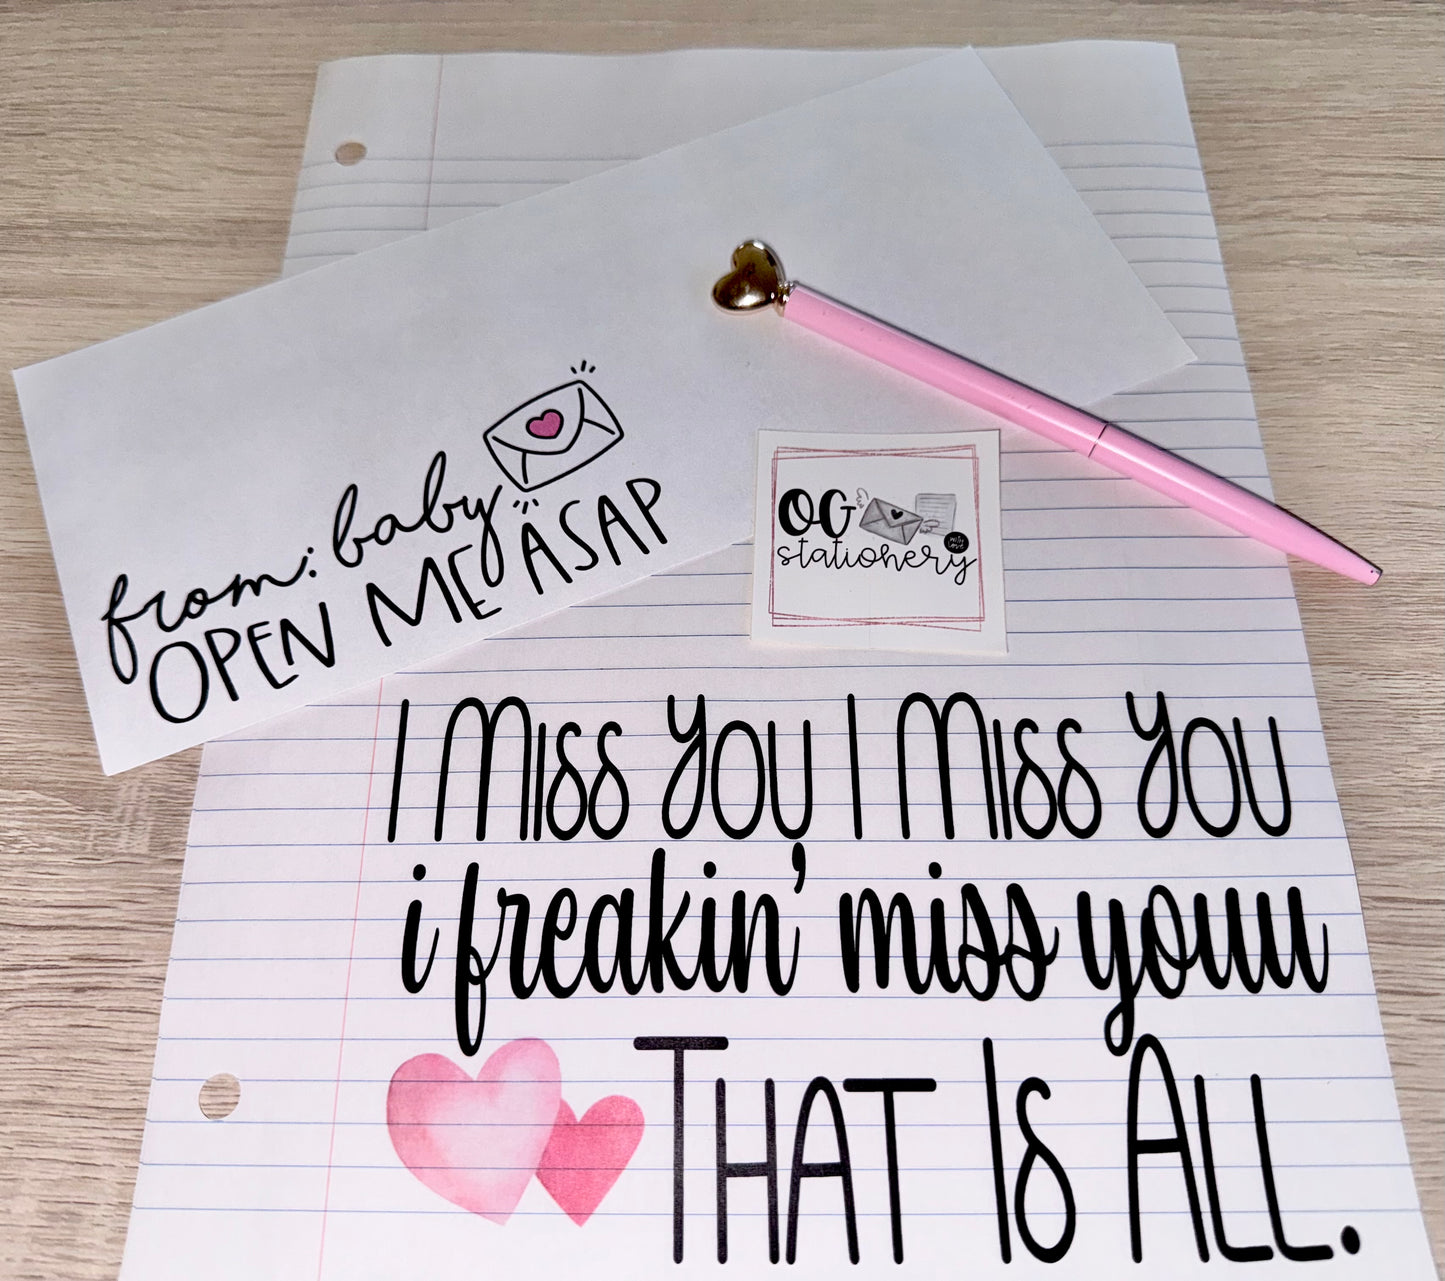 from: baby
OPEN ME ASAP
OG
stationery
with
love
I MISS YOU I MISS YOU
i freakin' miss youu
THAT IS ALL.